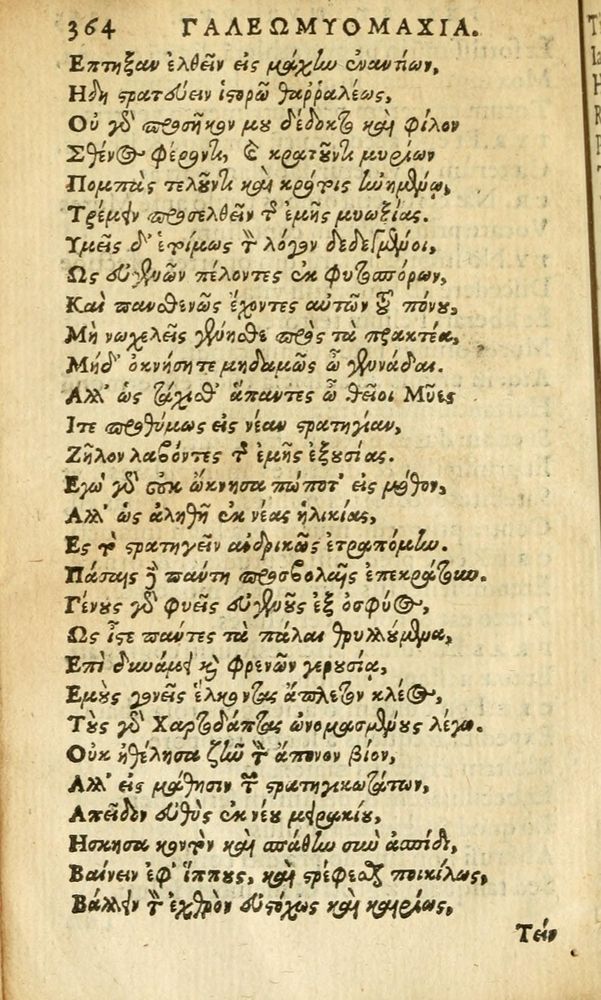 364 ΓΑΛΕΩΜΥΟΜΑΧΙΑ.
Επτηξαν ἐλθεῖν εἰς μάχην ἐναντίων,
Ηδη στρατεύειν ἱστορῶ θαρραλέως,
Οὐ γὰρ προσῆκον μου δέδοκτο καὶ φίλον
Σθένος φέροντι, καὶ κρατοῦντι μυρίων
Πομπὰς τελοῦντι καὶ κράτις ἠνημένῳ,
Τρέμειν προσελθεῖν τῆς ἐμῆς μυωξίας.
Υμεῖς δ' ἑτίμως τὸν λόγον δεδεγμένοι,
Ως εὐγενῶν πέλοντες ἐκ φυτοσπόρων,
Καὶ πανσθενῶς ἔχοντες αὐτῶν τοῦ πόνου,
Μὴ νωχελεῖς γένησθε πρὸς τὰ πρακτέα,
Μήδ' ὀκνήσητε μηδαμῶς ὦ γεννάδαι.
Αλλ' ὡς τάχισθ' ἅπαντες ὦ θεῖοι Μῦες
Ιτε προθύμως εἰς νέαν στρατηγίαν,
Ζῆλον λαβόντες τῆς ἐμῆς ἐξουσίας.
Εγὼ γὰρ οὐκ ὤκνησα πώποτ' εἰς μόθον,
Αλλ' ὡς ἀληθῆ ἐκ νέας ἡλικίας,
Ες τὸ στρατηγεῖν ἀνδρικῶς ἐτραπόμην.
Πάσης δὲ παύτη προσβολῆς ἐπεκράτουν.
Γένους γὰρ φυεῖς εὐγενοῦς ἐξ ὀσφύος,
Ως ἴστε πάντες τὰ πάλαι θρυλλούμενα,
Επὶ δυνάμει καὶ φρενῶν γερουσίᾳ,
Εμοὺς γονεῖς ἕλκοντας ἄπλετον κλέος,
Τοὺς γὰρ Χαρτοδάπτας ὠνομασμένους λέγω.
Οὐκ ἠθέλησα ζῆν τὸν ἄπονον βίον,
Αλλ' εἰς μάθησιν τῶν στρατηγικωτάτων,
Απεῖδον εὐθὺς ἐκ νέου μειρακίου,
Ησκησα κοντὸν καὶ σπάθην σὺν ἀσπίδι,
Βαίνειν ἐφ' ἵππους, καὶ στρέφεσθαι ποικίλως,
Βάλλειν τὸν ἐχθρὸν εὐστόχως καὶ καιρίως,
Τείν